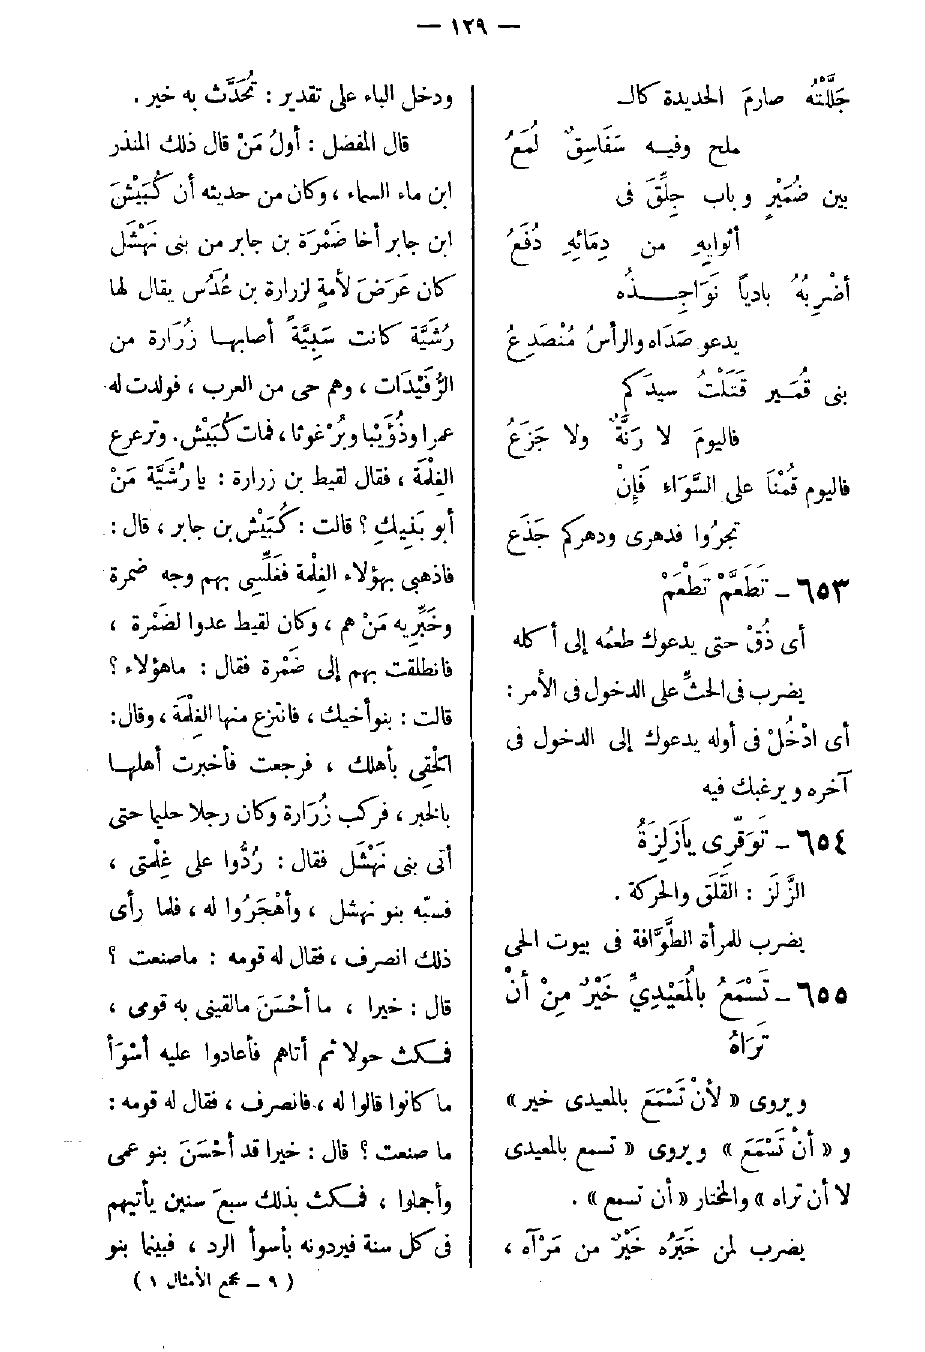 — ١٢٩ —
جَلَّلْتُهُ صارمَ الحديدة كالـ
ملح وفيـه سَفَاسِقٌ لُمَعُ
بين ضُمَيْرٍ وباب جِلِّقَ فى
أثوابِهِ من دِمَائِهِ دُفَعُ
أضْرِبُهُ بادياً نَوَاجِـــذُه
يدعو صَدَاه والرأسُ مُنْصَدِعُ
بنى قُمَيرٍ قَتَلْتُ سيدَكم
فاليومَ لا رَنَّةٌ ولا جَزَعُ
فاليوم قُمْنَا على السَّوَاء فَإِنْ
تجرُوا فدهرى ودهركم جَذَع
٦٥٣ – تَطَعَّمْ تَطْعَمْ
أى ذُقْ حتى يدعوك طعمُه إلى أكله
يضرب فى الحثِّ على الدخول فى الأمر :
أى ادْخُلْ فى أوله يدعوك إلى الدخول فى
آخره ويرغبك فيه
٦٥٤ – تَوَقَّرِى يَازَلِزَةُ
الزَّلَز : القَلَق والحركة .
يضرب للمرأة الطَّوَّافة فى بيوت الحى
٦٥٥ – تَسْمَعُ بالْمُعَيْدِىِّ خَيْرٌ مِنْ أنْ
تَرَاهُ
ويروى « لأنْ تَسْمَعَ بالمعيدى خير »
و « أنْ تَسْمَعَ » ويروى « تسمع بالمعيدى
لا أن تراه » والمختار « أن تسمع » .
يضرب لمن خَبَرُه خَيْرٌ من مَرْآه ،
ودخل الباء على تقدير : تُحَدَّث به خير .
قال المفضل : أولُ مَنْ قال ذلك المنذر
ابن ماء السماء ، وكان من حديثه أن كُبَيْشَ
ابن جابر أخا ضَمْرَة بن جابر من بنى نَهْشَل
كان عَرَضَ لأمةٍ لزرارة بن عُدَس يقال لها
رُشَيَّة كانت سَبِيَّةً أصابهـا زُرَارة من
الرُّفَيْدَات ، وهم حى من العرب ، فولدت له
عمرا وذُؤَيْبا وبُرْغوثا ، فمات كُبَيْش . وترعرع
الغِلْمَة ، فقال لقيط بن زرارة : يا رُشَيَّة مَنْ
أبو بَنِيكِ ؟ قالت : كُبَيْش بن جابر ، قال :
فاذهبى بهؤلاء الغِلْمة فغَلِّسِى بهم وجه ضمرة
وخَبِّرِيه مَنْ هم ، وكان لقيط عدوا لضَمْرة ،
فانطلقت بهم إلى ضَمْرة فقال : ماهؤلاء ؟
قالت : بنو أخيك ، فانتزع منها الغِلْمَة ، وقال :
الْحَقِى بأهلك ، فرجعت فأخبرت أهلهـا
بالخبر ، فركب زُرَارة وكان رجلا حليما حتى
أتى بنى نَهْشَل فقال : رُدُّوا على غِلْمتى ،
فسبَّه بنو نهشل ، وأهْجَرُوا له ، فلما رأى
ذلك انصرف ، فقال له قومه : ماصنعت ؟
قال : خيرا ، ما أحْسَنَ مالقينى به قومى ،
فمكث حولا ثم أتاهم فأعادوا عليه أسْوَأ
ما كانوا قالوا له ، فانصرف ، فقال له قومه :
ما صنعت ؟ قال : خيرا قد أحْسَنَ بنو عمى
وأجملوا ، فمكث بذلك سبعَ سنين يأتيهم
فى كل سنة فيردونه بأسوأ الرد ، فبينما بنو
( ٩ – مجمع الأمثال ١ )